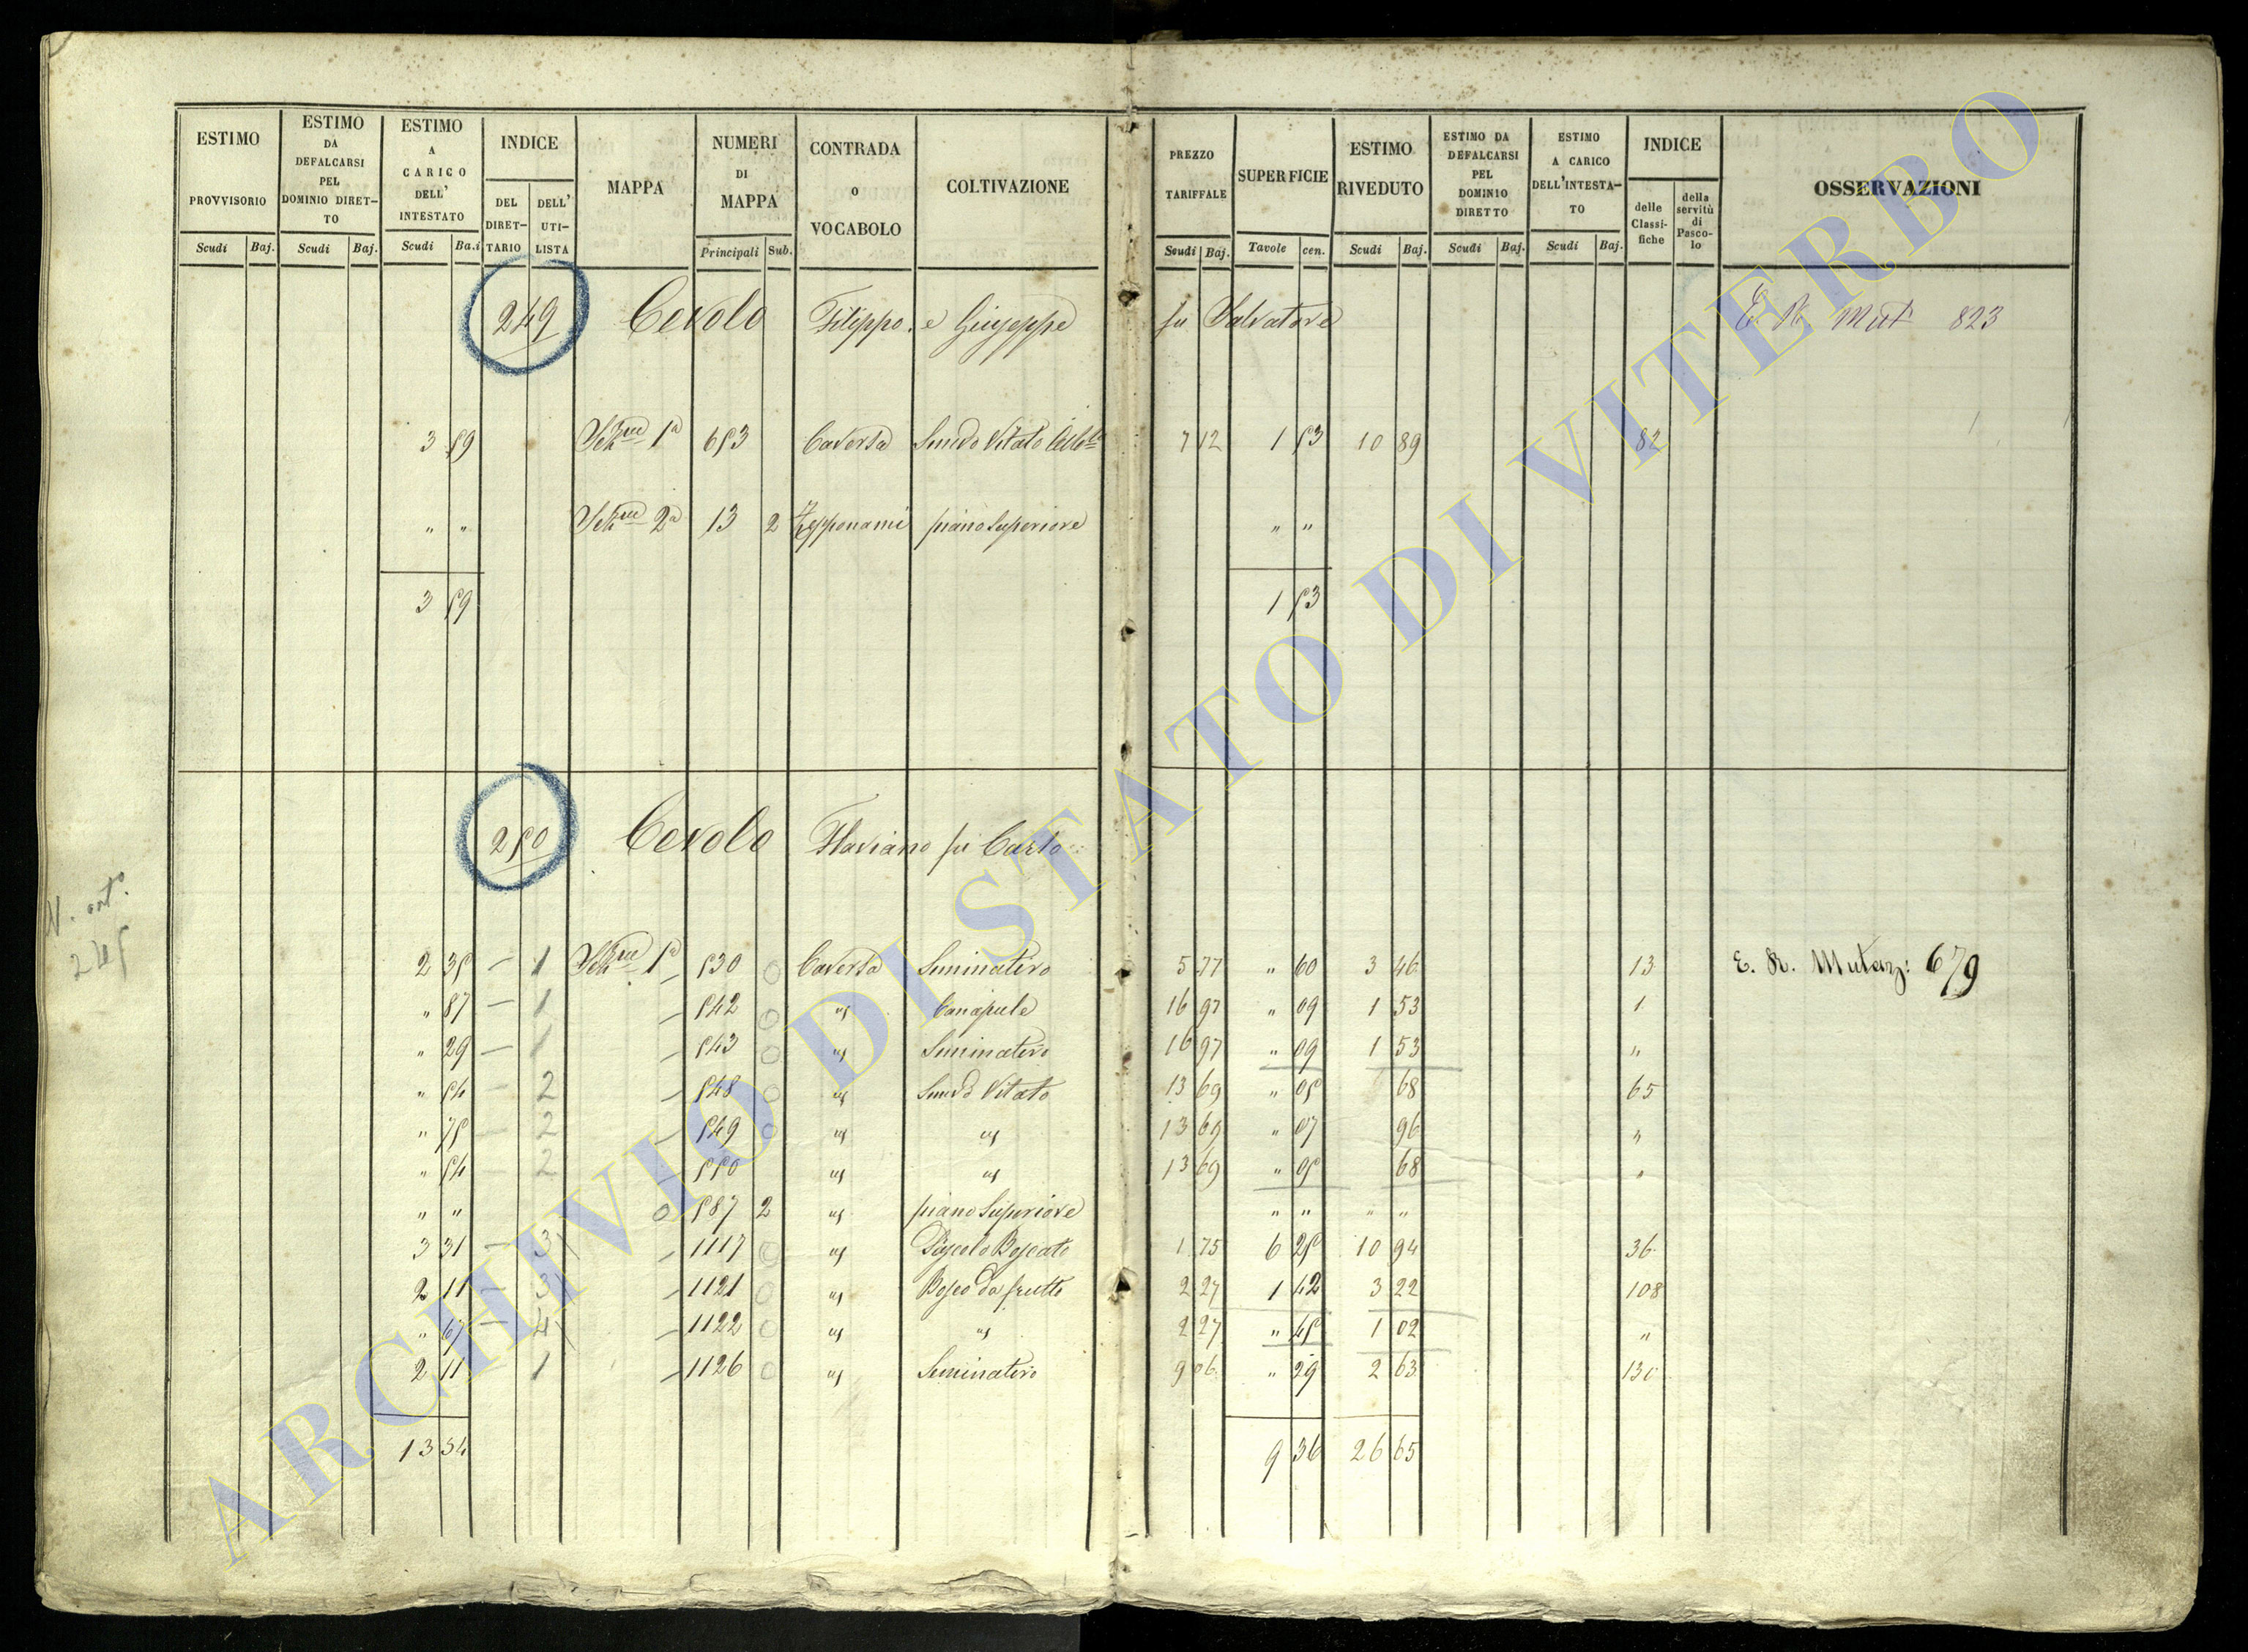 ESTIMO PROVVISORIO
Scudi Baj.
ESTIMO DA DEFALCARSI PEL DOMINIO DIRET- TO
Scudi Baj.
ESTIMO A CARICO DELL' INTESTATO
Scudi Ba.i
INDICE
DEL DIRET- TARIO
DELL' UTI- LISTA
MAPPA
NUMERI DI MAPPA
Principali Sub.
CONTRADA O VOCABOLO
COLTIVAZIONE
PREZZO TARIFFALE
Scudi Baj.
SUPERFICIE
Tavole cen.
ESTIMO RIVEDUTO
Scudi Baj.
ESTIMO DA DEFALCARSI PEL DOMINIO DIRETTO
Scudi Baj.
ESTIMO A CARICO DELL'INTESTA- TO
Scudi Baj.
INDICE
delle Classi- fiche
della servitù di Pasco- lo
OSSERVAZIONI
249 Cevolo Filippo e Giuseppe fu Salvatore E. R. Mut 823
3 59 Sez.ne 1a 653 Caversa Semvo Vitato 7 12 1 53 10 89 82
" " Sez.ne 2a 13 2 Zepponami piano Superiore " "
3 59 1 53
250 Cevolo Flaviano fu Carlo
N. art.
245
2 35 — 1 Sez.ne 1a 530 0 Caversa Seminativo 5 77 " 60 3 46 13 E. R. Mutaz: 679
" 87 — 1 — 542 0 us Canapule 16 97 " 09 1 53 1
" 29 — 1 — 543 0 us Seminativo 16 97 " 09 1 53 "
" 54 — 2 — 548 0 us Semvo Vitato 13 69 " 05 68 65
" 75 — 2 — 549 0 us us 13 69 " 07 96 "
" 54 — 2 — 550 us us 13 69 " 05 68 "
" " 0 587 2 us piano Superiore " " " "
3 31 — 3 — 1117 0 us Pascolo Boscato 1 75 6 25 10 94 36
2 11 — 3 — 1121 0 us Bosco da frutto 2 27 1 42 3 22 108
" 67 — 4 — 1122 0 us us 2 27 " 45 1 02 "
2 11 1 — 1126 0 us Seminativo 9 06 " 29 2 63 130
13 54 9 36 26 65
ARCHIVIO DI STATO DI VITERBO